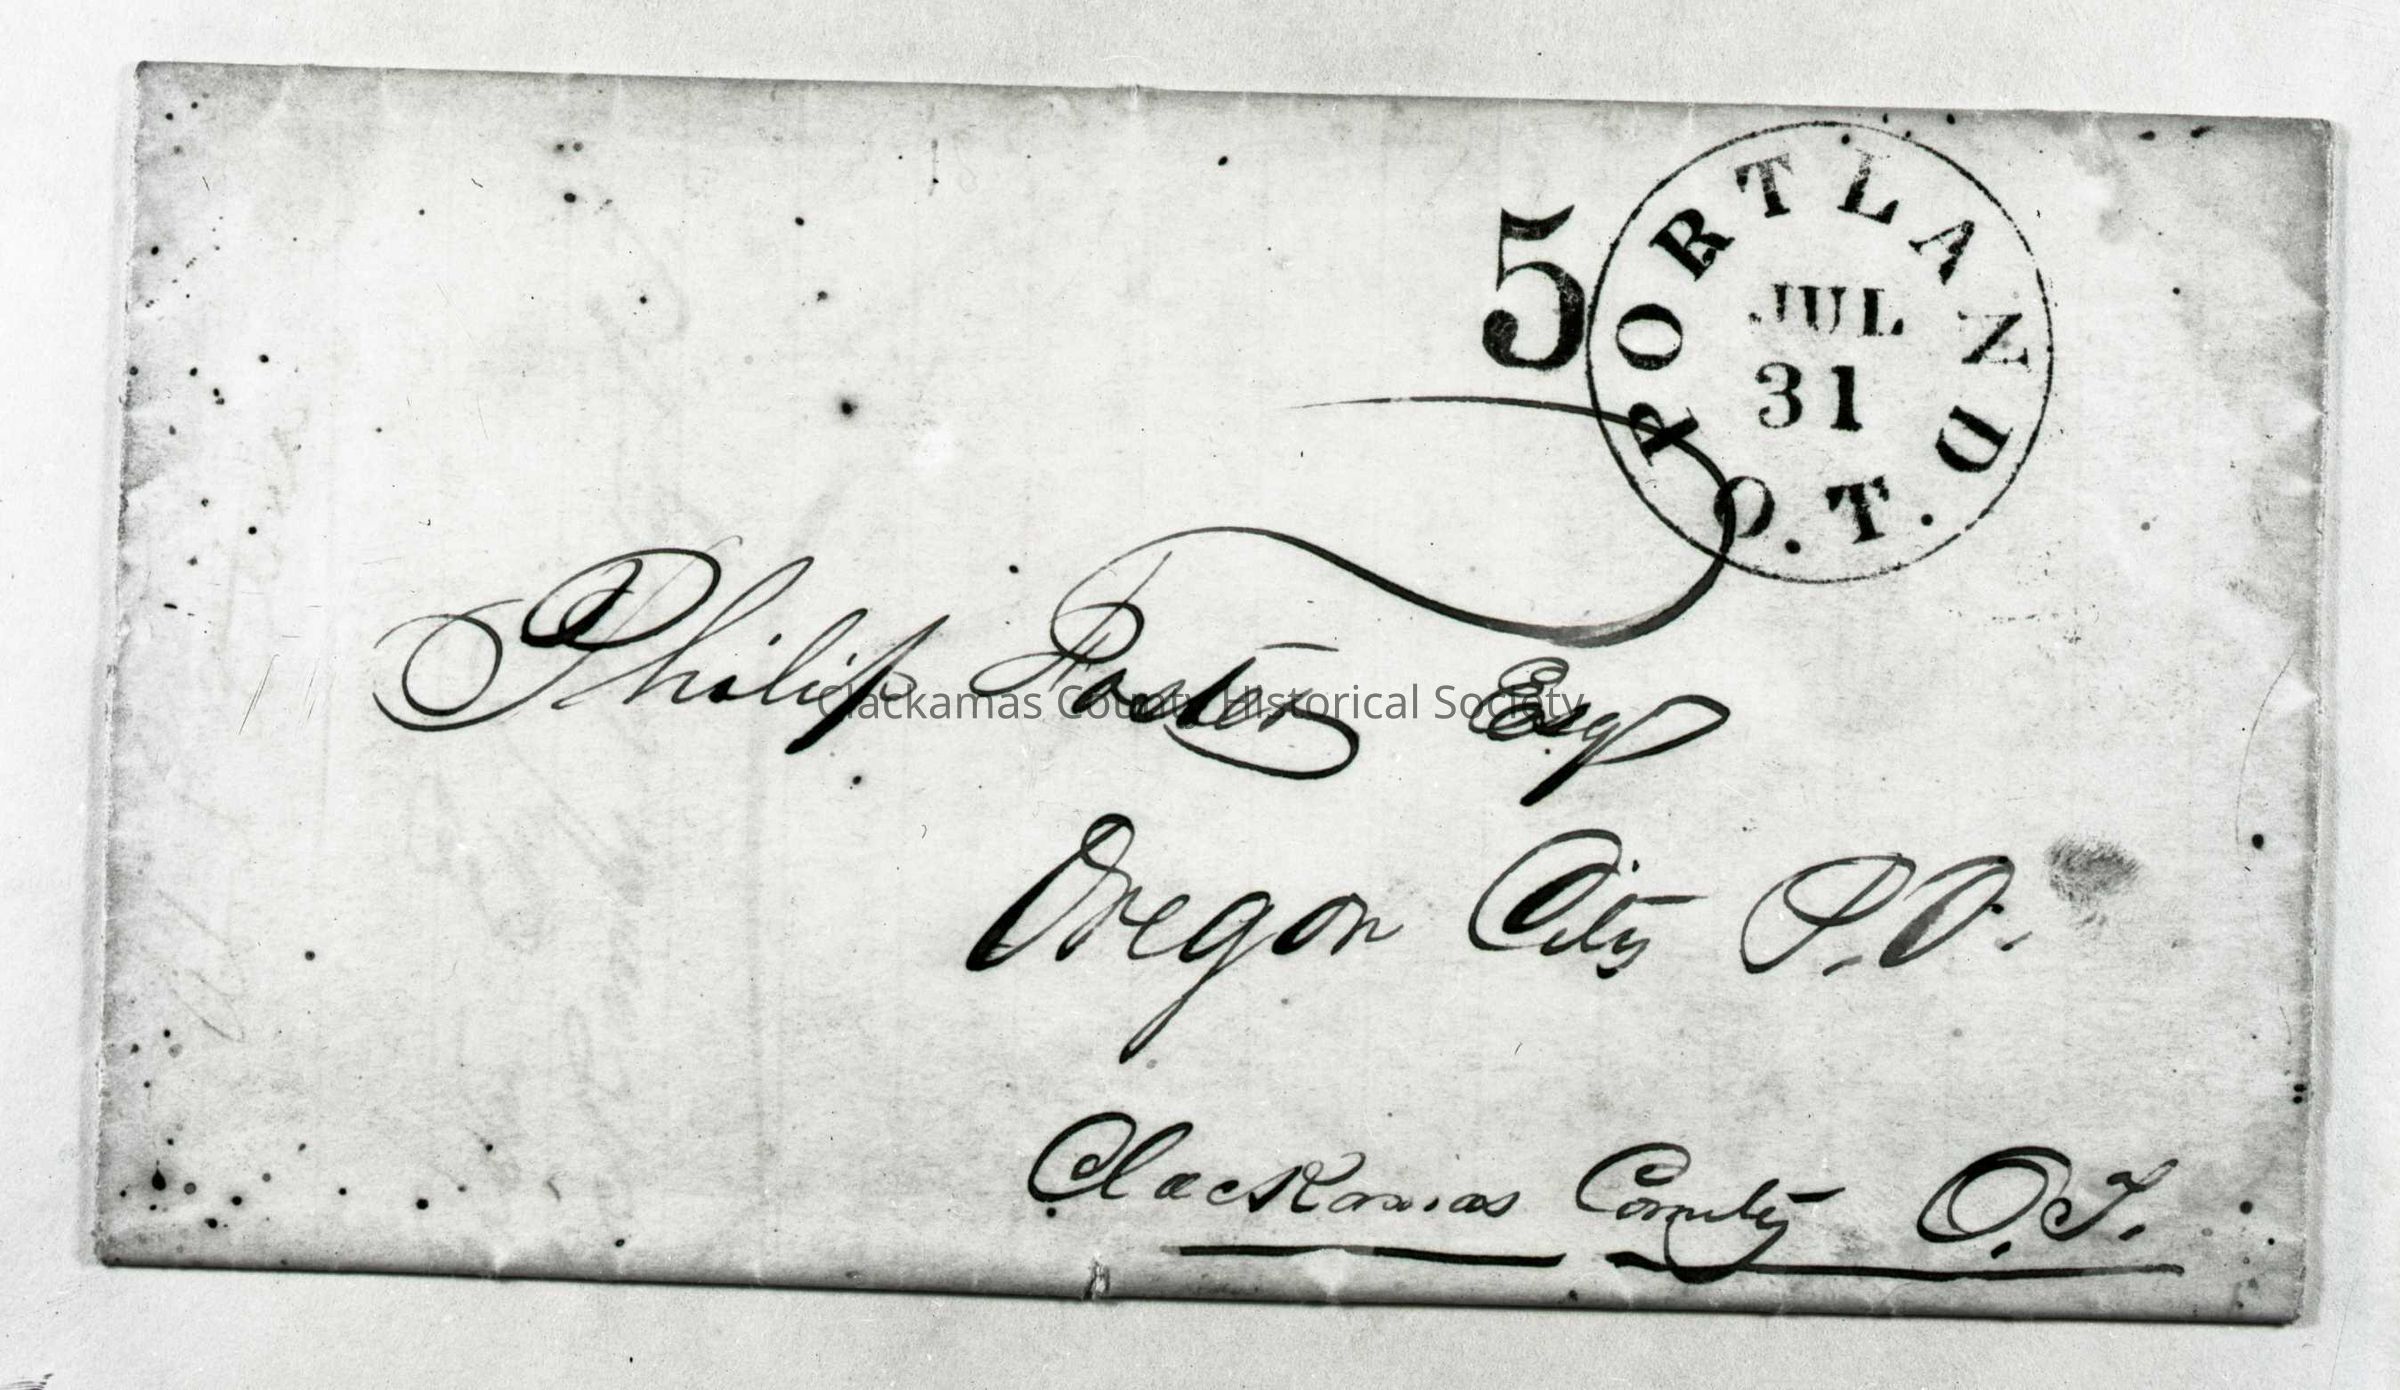 5
PORTLAND O.T.
JUL
31
Philip Foster Esq
Clackamas County Historical Society
Oregon City P.O.
Clackamas County O.T.